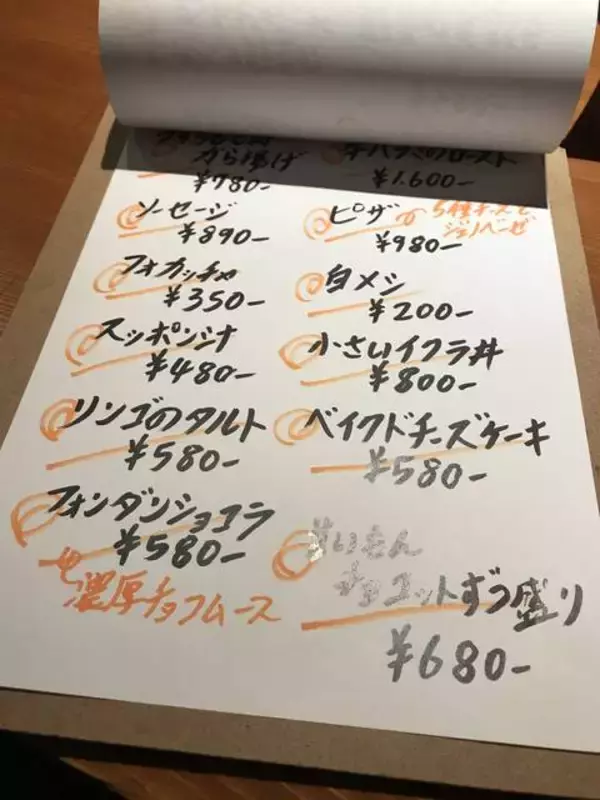 から揚げ
¥780-
牛ハラミのロースト
¥1.600-
ソーセージ
¥890-
ピザ
¥980-
5種チーズと
ジェノベーゼ
フォカッチャ
¥350-
白メシ
¥200-
スッポンジナ
¥480-
小さいイクラ丼
¥800-
リンゴのタルト
¥580-
ベイクドチーズケーキ
¥580-
フォンダンショコラ
¥580-
濃厚チョコムース
甘いもん
チョコットずつ盛り
¥680-